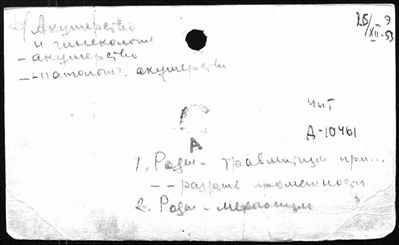 Акушерство
и гинекология
- акушерство
- - патологич. акушерство
25/XII-53
Чит
Д-10461
А
1. Роды - травматизм при...
- - разрыв промежности
2. Роды -